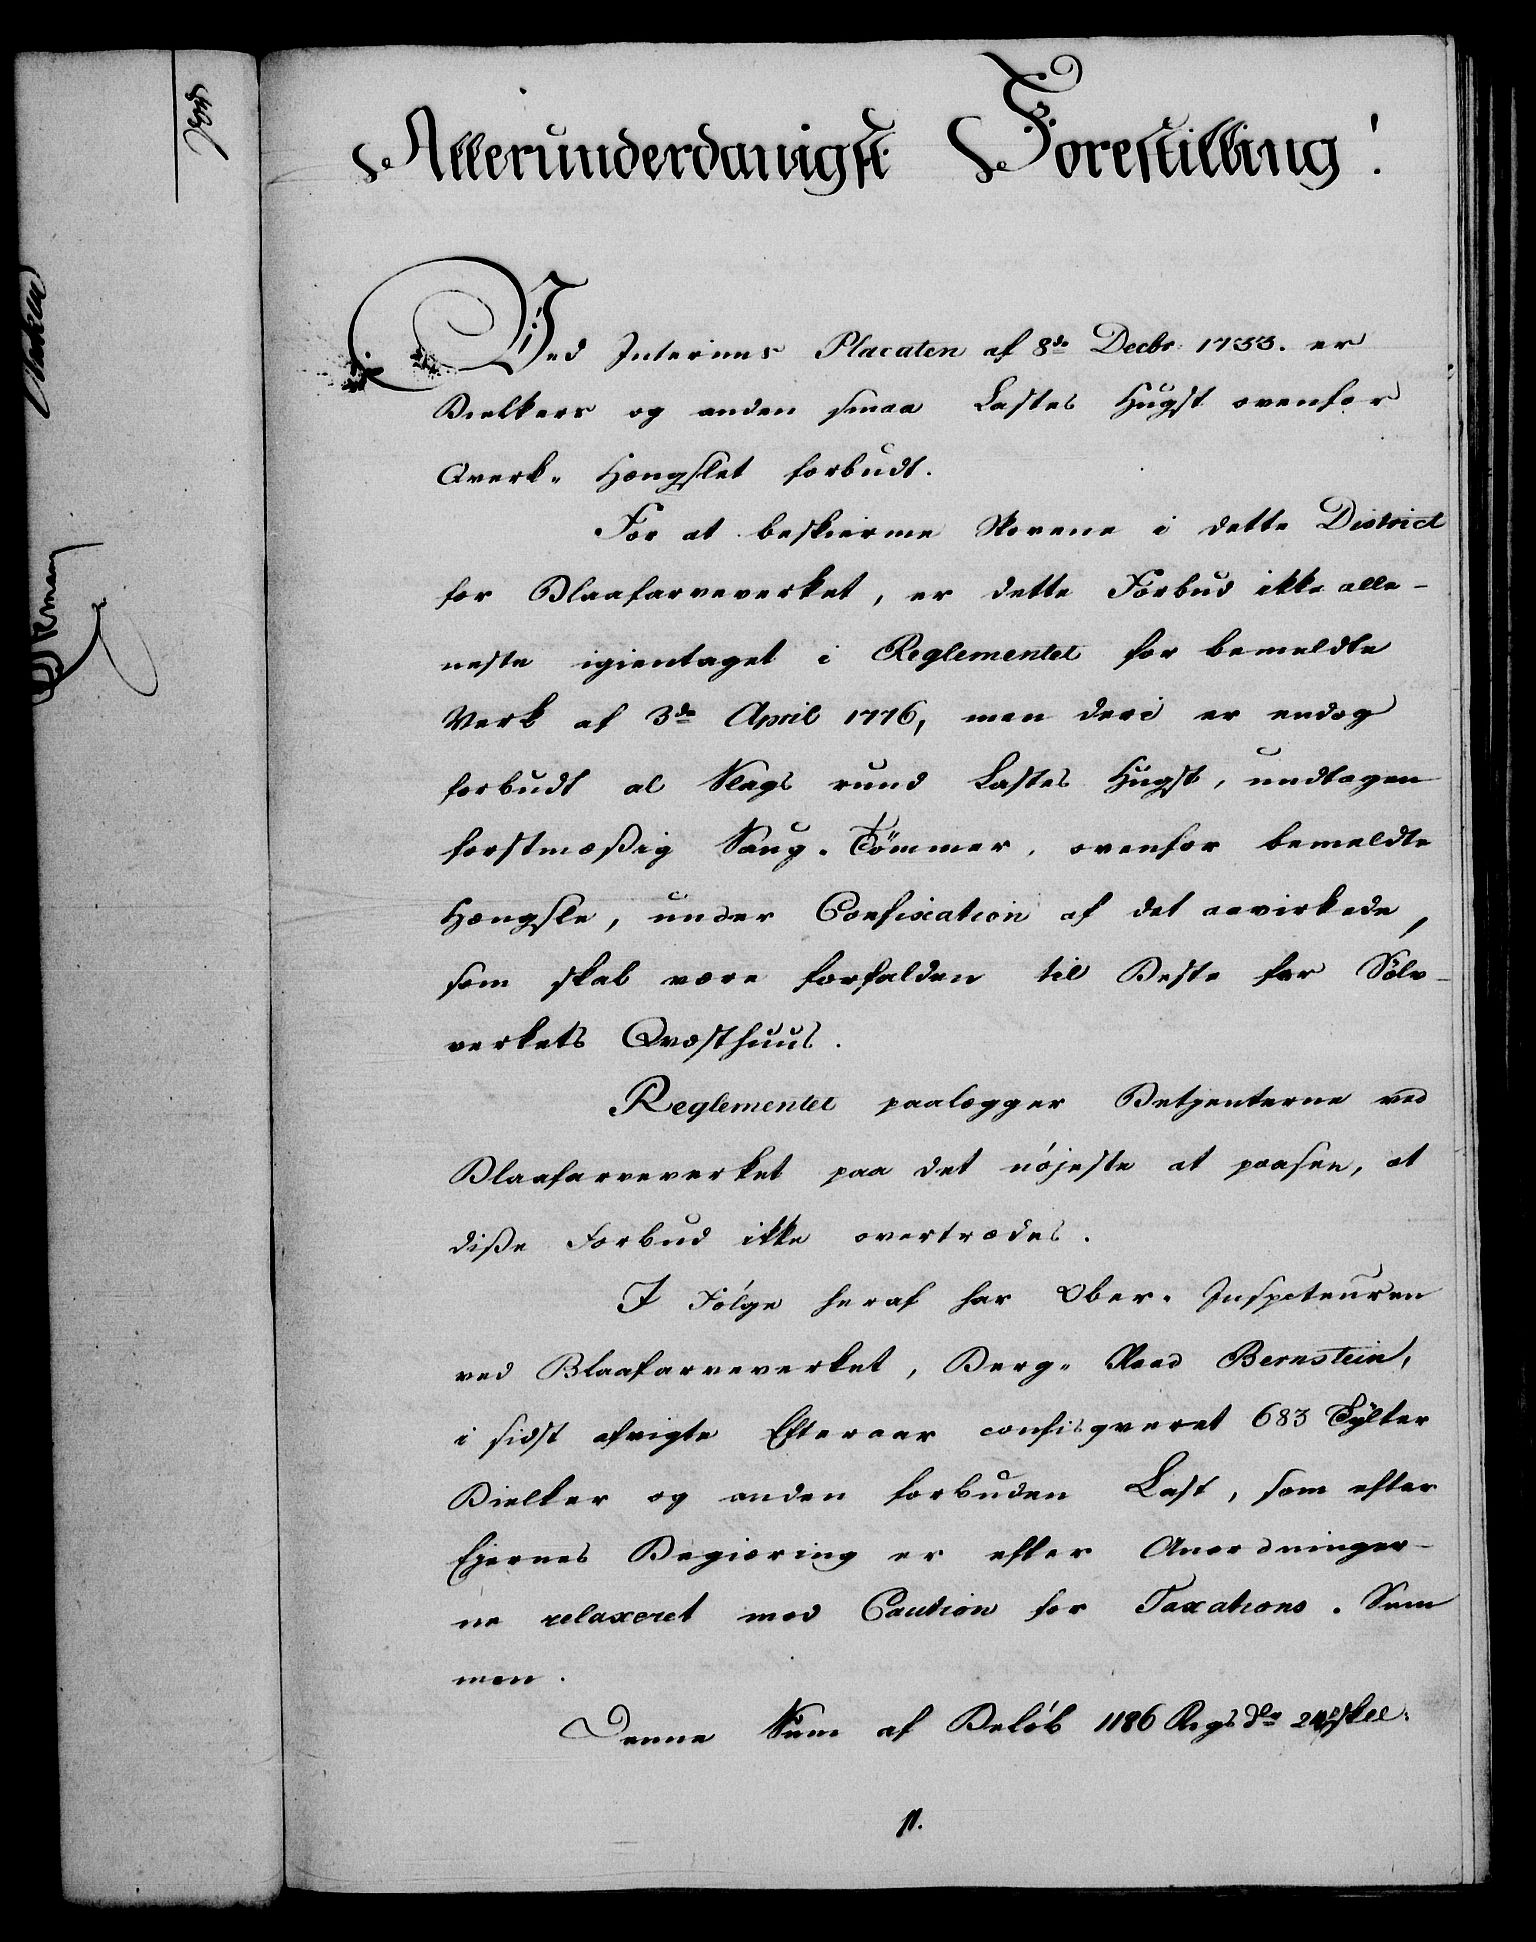 Allerunderdanigst Forestilling!
Ved Interims Placaten af 8de Decbr 1733. er
Bielkers og anden smaa Lastes Hugst ovenfor
Qverk-Hængslet forbudt.
For at beskierme Skovene i dette District
for Blaafarveverket, er dette Forbud ikke alle-
neste igientaget i Reglementet for bemeldte
Verk af 3de April 1776, men deri er endog
forbudt al Slags rund Lastes Hugst, undtagen
forstmæßig Saug-Tömmer, ovenfor bemeldte
Hængsle, under Confiscation af det aavirkede,
som skal være forfalden til Beste for Sölv-
verkets Qvæsthuus.
Reglementet paalægger Betjenterne ved
Blaafarveverket paa det nöjeste at paasee, at
diße Forbud ikke overtrædes.
I Fölge heraf har Ober-Inspecteuren
ved Blaafarveverket, Berg-Raad Bernstein,
i sidst afvigte Efteraar confisqveret 683 Tylter
Bielker og anden forbuden Last, som efter
Ejernes Begiæring er efter Anordninger-
ne relaxeret mod Caution for Taxations-Sum
men.
Denne Sum af Belöb 1186 Rigsdr 24 skl.